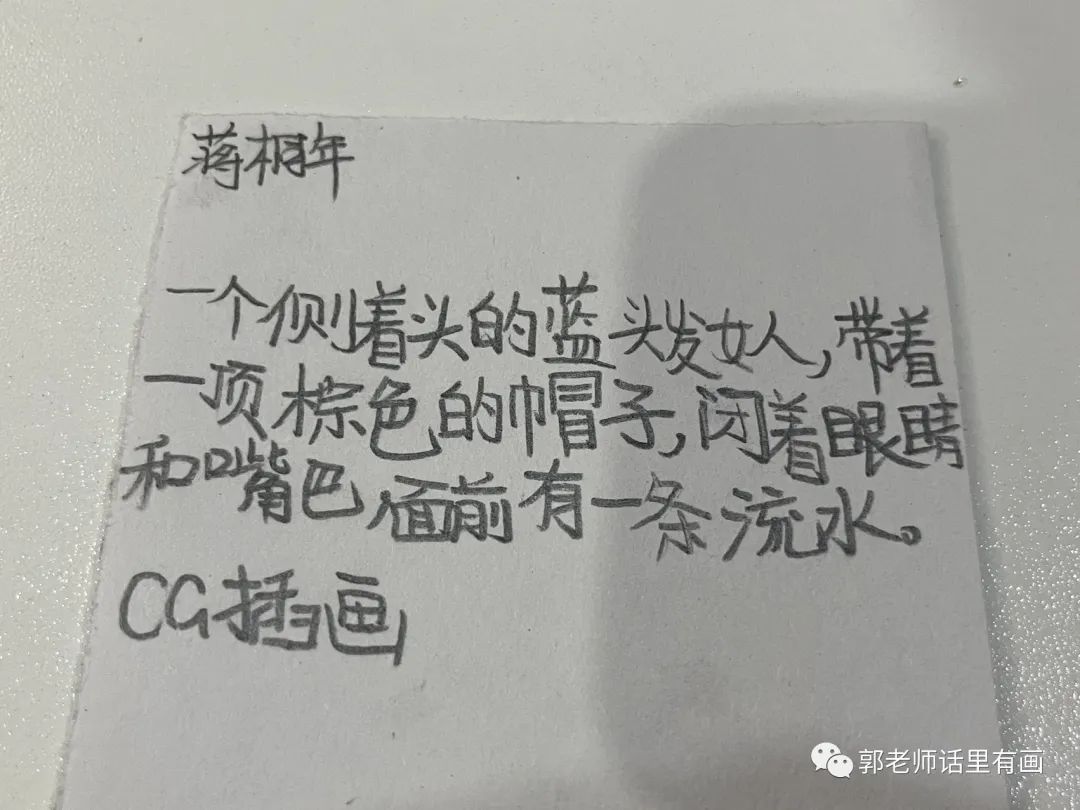 蒋桐年
一个侧着头的蓝头发女人,带着
一顶棕色的帽子,闭着眼睛
和嘴巴,面前有一条流水。
CG插画
郭老师话里有画